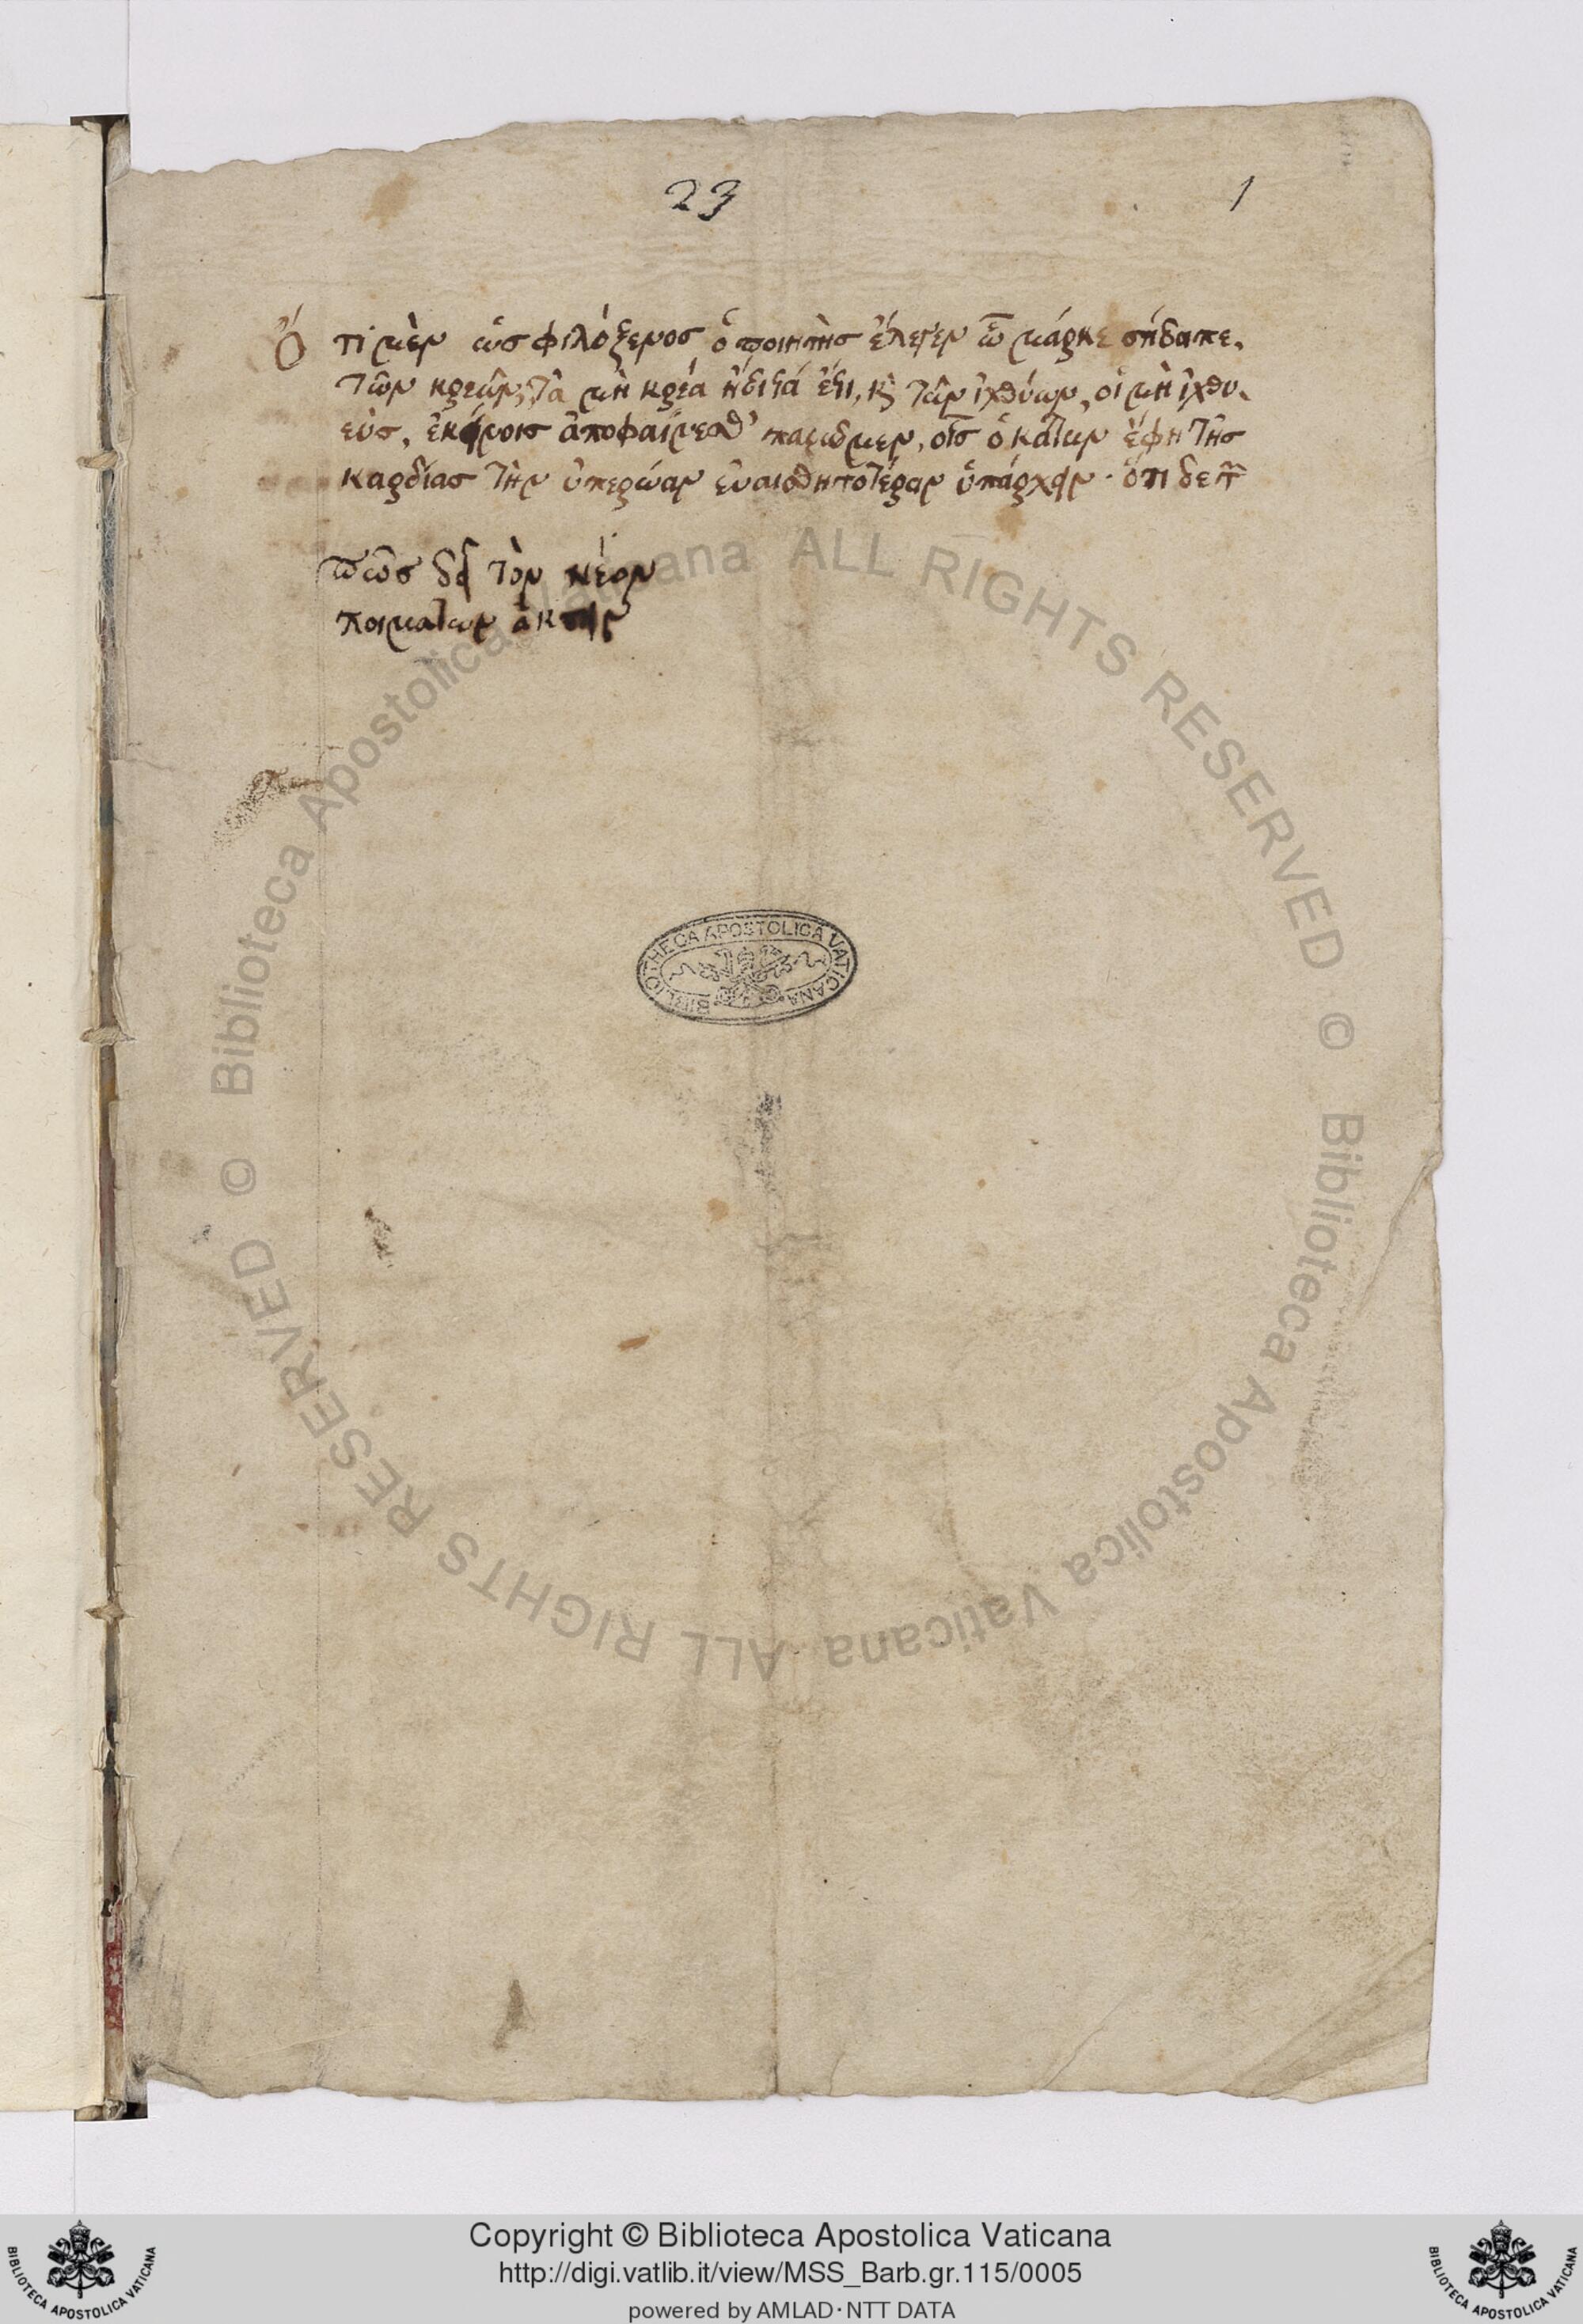 23
1
Ὅτι μὲν ὡς φιλόξενος ὁ ποιητὴς ἔλεγεν ὦ μάρκε σήδαπε.
τῶν κρεῶν, τὰ μὴ κρέα ἥδιστά ἐστι, καὶ τῶν ἰχθύων, οἱ μὴ ἰχθυ
εύς, ἐκείνοις ἀποφαίνεσθ' παρῶμεν, οἷς ὁ κάτων ἔφη τῆς
καρδίας τὴν ὑπερώαν εὐαισθητοτέραν ὑπάρχειν. ὅτι δε τ
πῶς δεῖ τὸν νέον
ποιμάτων ἀκούειν
BIBLIOTHECA APOSTOLICA VATICANA
© Biblioteca Apostolica Vaticana ALL RIGHTS RESERVED
© Biblioteca Apostolica Vaticana ALL RIGHTS RESERVED
Copyright © Biblioteca Apostolica Vaticana
http://digi.vatlib.it/view/MSS_Barb.gr.115/0005
powered by AMLAD·NTT DATA
BIBLIOTECA APOSTOLICA VATICANA
BIBLIOTECA APOSTOLICA VATICANA